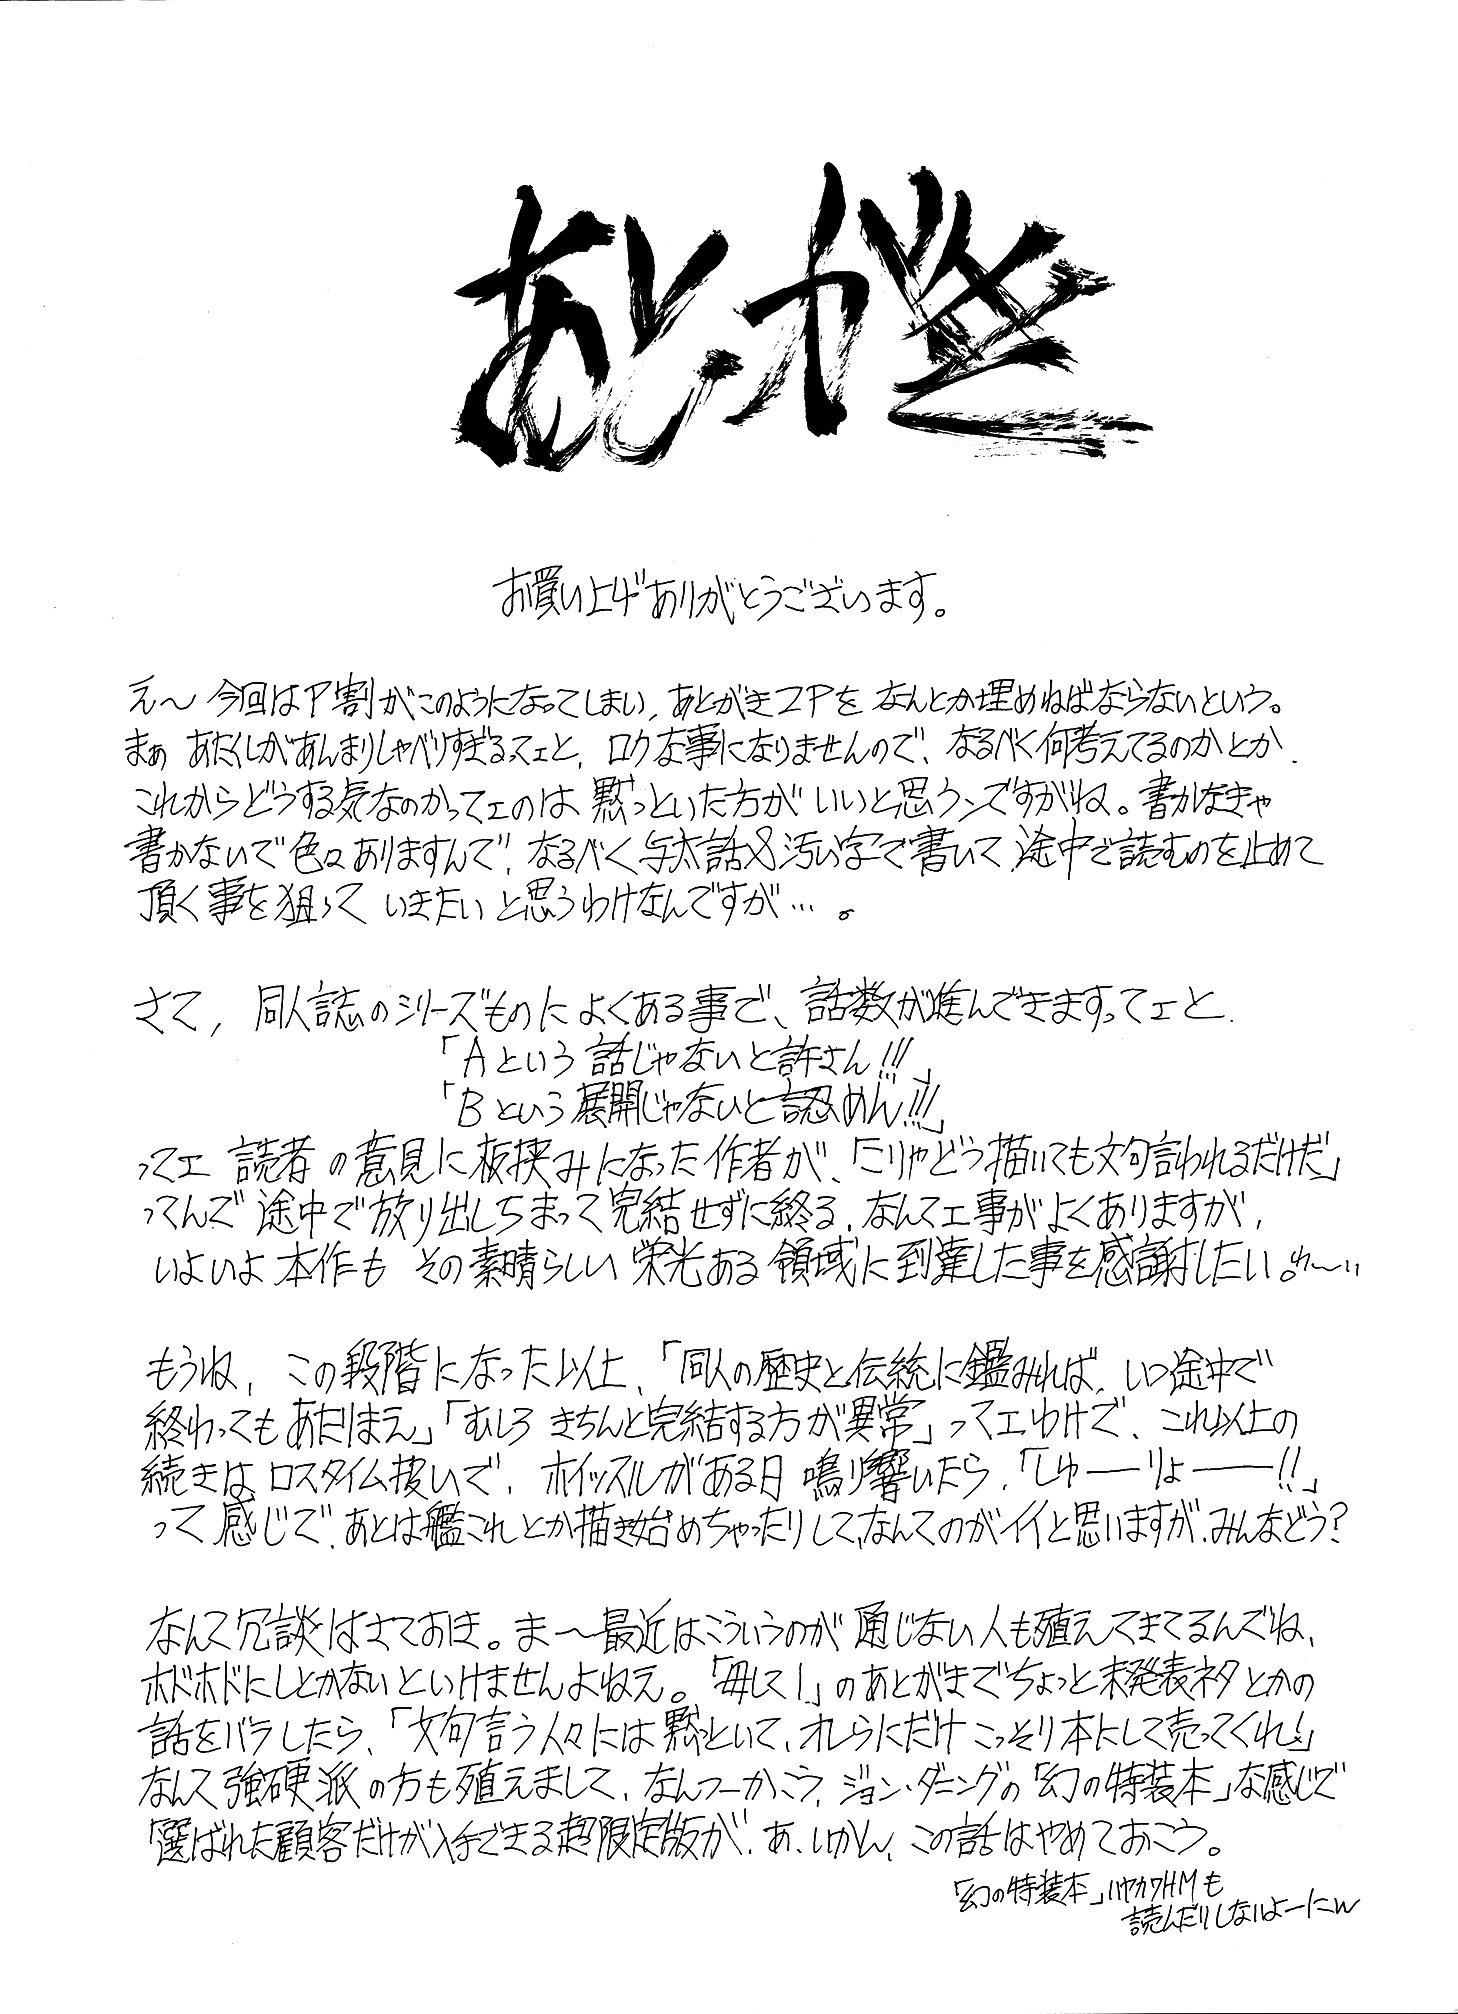 あとがき
お買い上げありがとうございます。
え〜今回はP割がこのようになってしまい、あとがき2Pをなんとか埋めねばならないという。
まぁあたくしがあんまりしゃべりすぎるってェと、ロクな事になりませんので、なるべく何考えてるのかとか、
これからどうする気なのかってェのは黙っといた方がいいと思うンですがね。書かなきゃ
書かないで色々ありますんで、なるべく与太話&汚い字で書いて途中で読むのを止めて
頂く事を狙っていきたいと思うわけなんですが…。
さて、同人誌のシリーズものによくある事で、話数が進んできますってェと、
「Aという話じゃないと許さん!!!」
「Bという展開じゃないと認めん!!!」
ってェ読者の意見に板挟みになった作者が、「こりゃどう描いても文句言われるだけだ」
ってんで途中で放り出しちまって完結せずに終る、なんてェ事がよくありますが、
いよいよ本作もその素晴らしい栄光ある領域に到達した事を感謝したい。わ〜い
もうね、この段階になった以上、「同人の歴史と伝統に鑑みれば、いつ途中で
終わってもあたりまえ」「むしろきちんと完結する方が異常」ってェわけで、これ以上の
続きはロスタイム扱いで、ホイッスルがある日鳴り響いたら、「しゅーーりょーー!!」
って感じで、あとは艦これとか描き始めちゃったりして、なんてのがイイと思いますが、みんなどう?
なんて冗談はさておき。ま〜最近はこういうのが通じない人も殖えてきてるんでね、
ホドホドにしとかないといけませんよねえ。「毋して!」のあとがきでちょっと未発表ネタとかの
話をバラしたら、「文句言う人々には黙っといて、オレらにだけこっそり本にして売ってくれ!」
なんて強硬派の方も殖えまして、なんつーかこう、ジョン・ダニングの「幻の特装本」な感じで
「選ばれた顧客だけが入手できる超限定版が、あ、いかん、この話はやめておこう。
「幻の特装本」ハヤカワHMも
読んだりしないよーにw